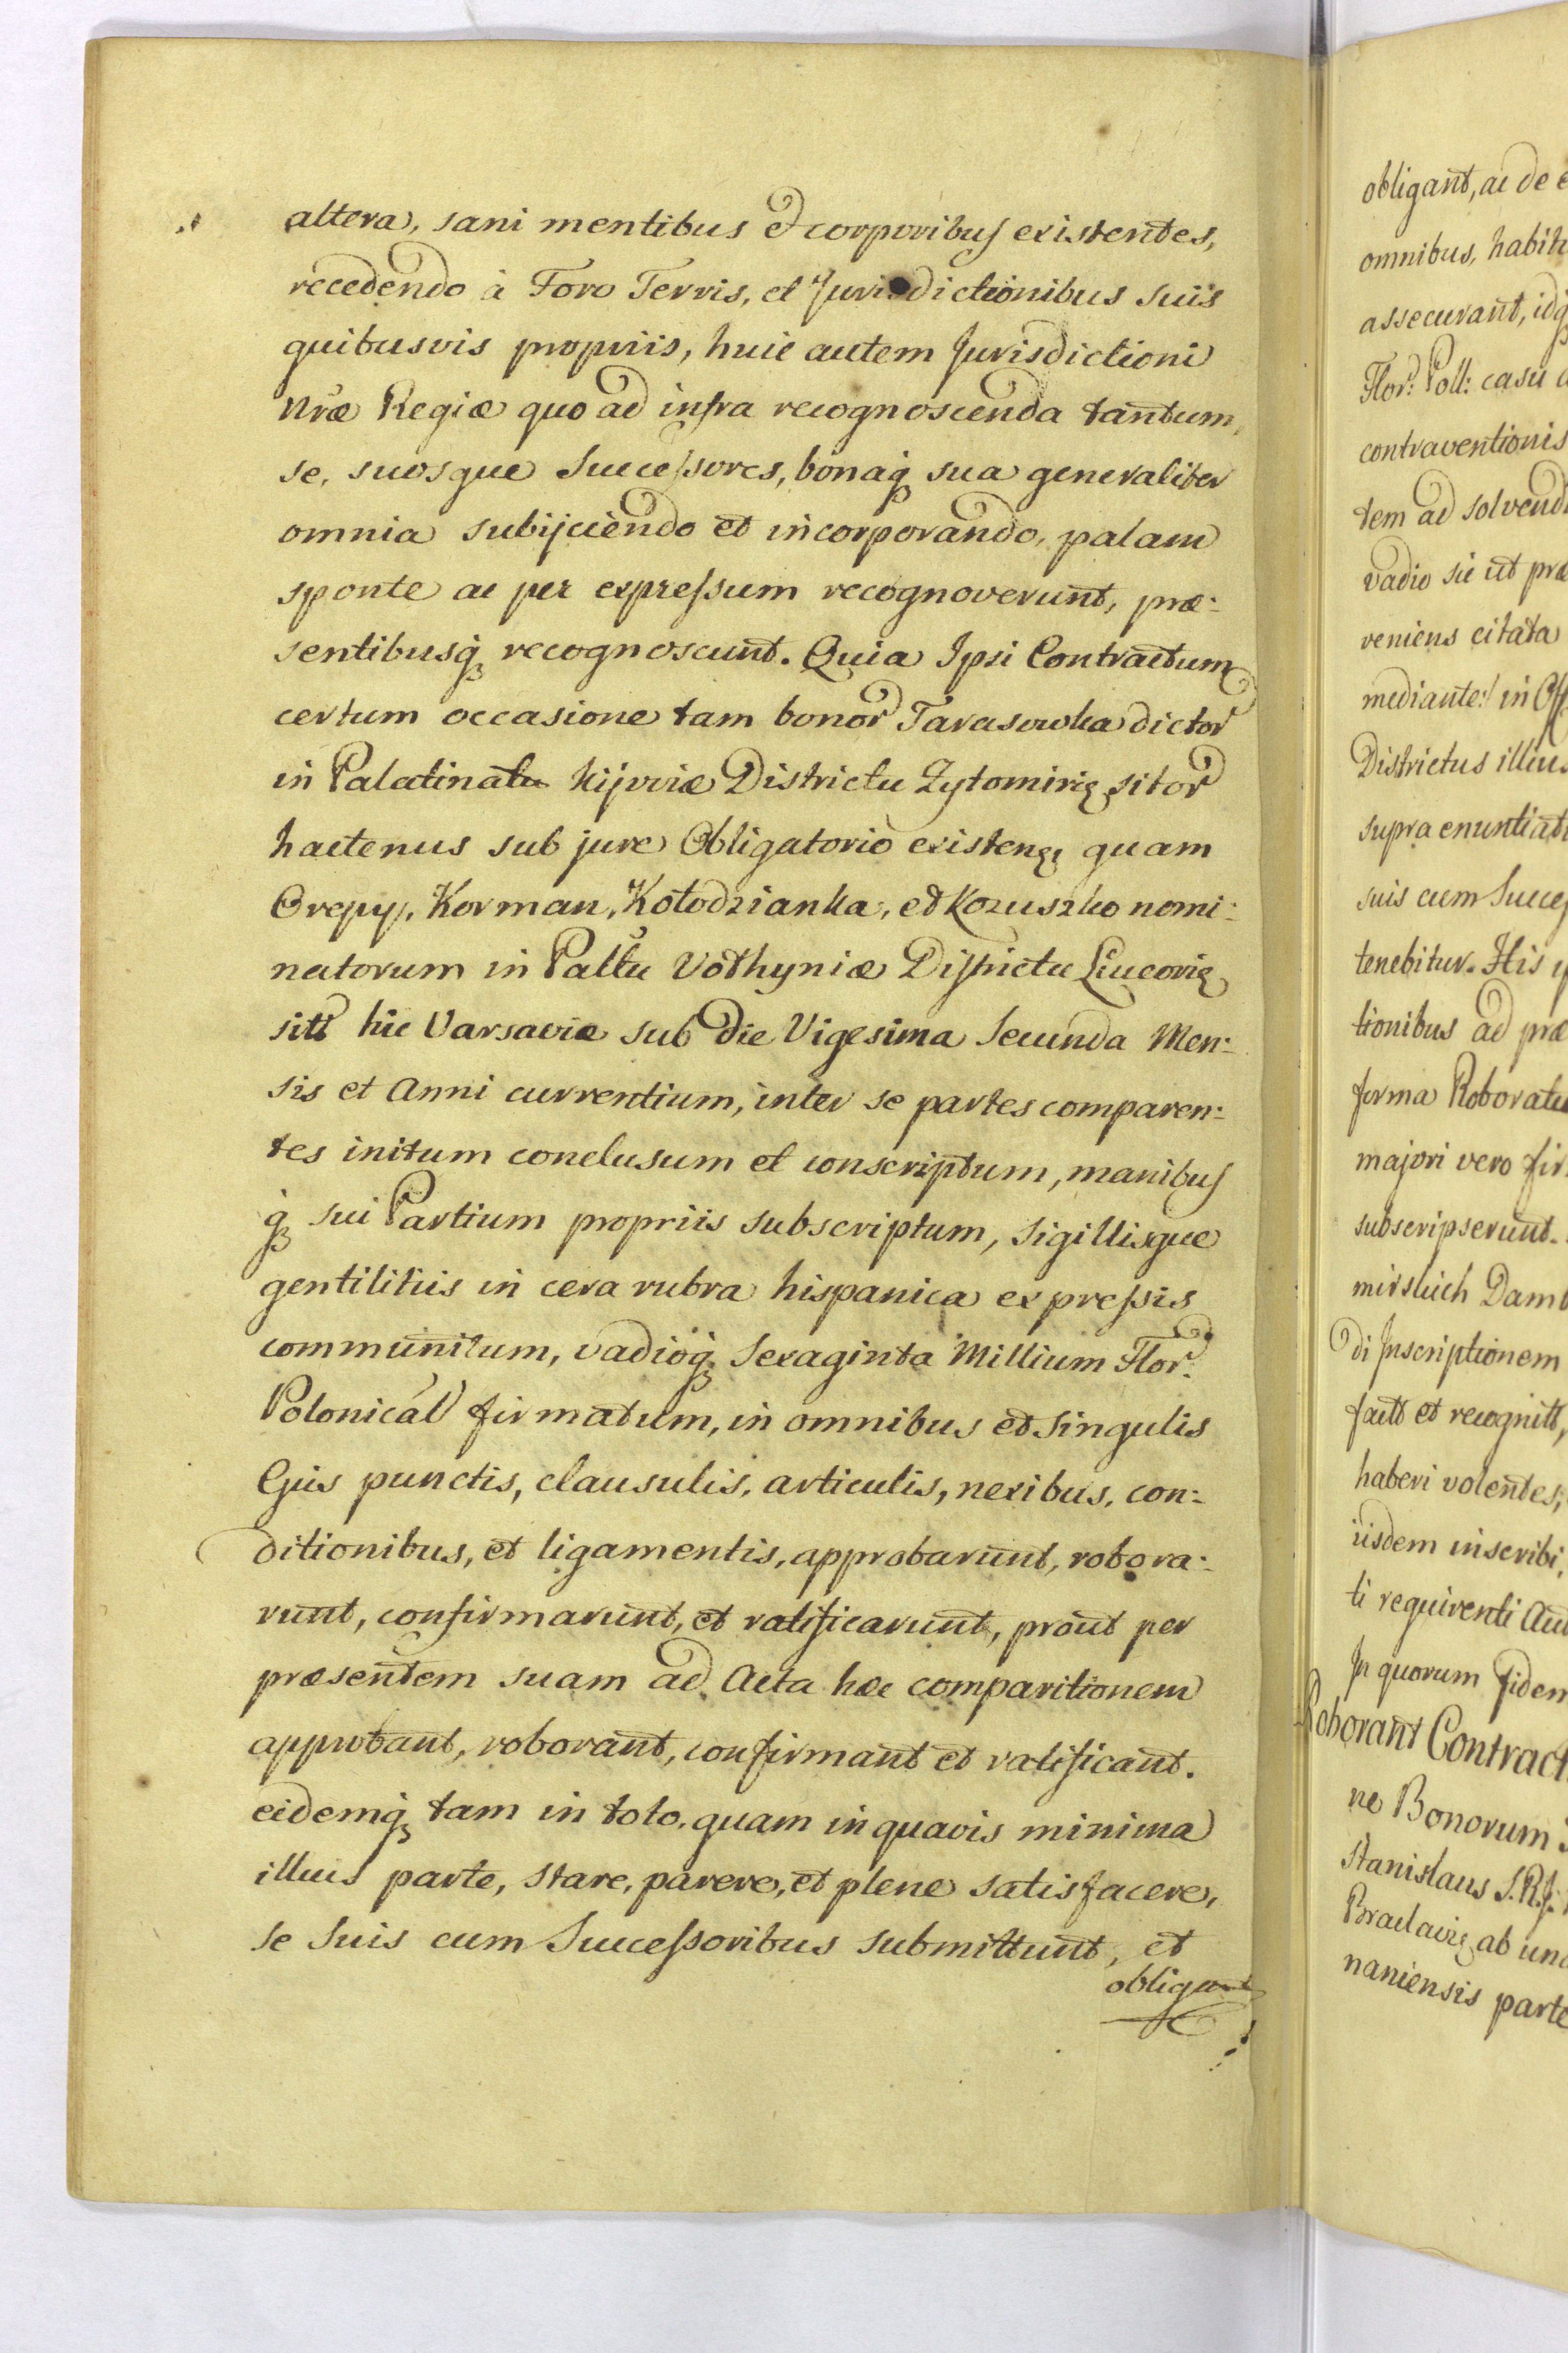 altera, sani mentibus et corporibus existentes,
recedendo à Foro Terris, et Jurisdictionibus suis
quibusvis propriis, huic autem Jurisdictioni
Nræ Regiæ quo ad infra recognoscenda tantum,
se, suosque Successores, bonaq; sua generaliter
omnia subijciendo et incorporando, palam
sponte ac per expressum recognoverunt, præ:
sentibusq; recognoscunt. Quia Ipsi Contractum
certum occasione tam bonor Tarasowka dictor
in Palatinatu Kijoviæ Districtu Zytomirię sitor
hactenus sub jure Obligatorio existen, quam
Orepy, Korman, Kołodzianka, et Kozuszko nomi:
natorum in Paltu Vołhyniæ Districtu Luceorię
sitt hic Varsaviæ sub die Vigesima Secunda Men:
sis et Anni currentium, inter se partes comparen:
tes initum conclusum et conscriptum, manibus
q; sui Partium propriis subscriptum, Sigillisque
gentilitiis in cera rubra hispanica expressis
communitum, vadioq; Sexaginta Millium Flor:
Polonical firmatum, in omnibus et singulis
Ejus punctis, clausulis, articulis, nexibus, con:
ditionibus, et ligamentis, approbarunt, robora:
runt, confirmarunt, et ratificarunt, prout per
præsentem suam ad Acta hæc comparitionem
approbant, roborant, confirmant et ratificant.
eidemq; tam in toto, quam in quavis minima
illius parte, stare, parere, et plene satisfacere,
se suis cum Successoribus submittunt, et
obligant
obligant, ac de
omnibus, habit
assecurant, idq
Flor: Poll: casu
contraventionis
tem ad solvend
vadio sic ut præ
veniens citata
mediante in Off
Districtus illius
supra enuntiat
suis cum Succes
tenebitur. His
tionibus ad præ
forma Roborat
majori vero fir
subscripserunt.
mirskich Damb
di Inscriptionem
factt et recognitt,
haberi volentes,
iisdem inscribi,
ti requirenti Aut
In quorum fidem
Roborant Contract
ne Bonorum
Stanislaus S.R.J.
Braclavię ab una
naniensis parte